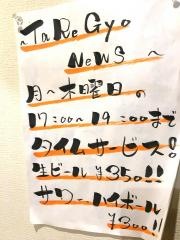 ~TaRe Gyo
NeWS ~
月~木曜日の
17:00~19:00まで
タイムサービス!
生ビール ¥350!!
サワーハイボール
¥300!!